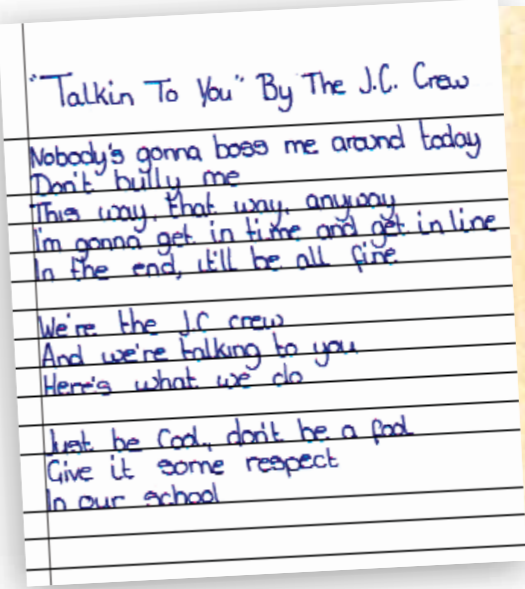 "Talkin To You" By The J.C. Crew
Nobody's gonna boss me around today
Don't bully me
This way, that way, anyway
I'm gonna get in time and get in line
In the end, it'll be all fine
We're the J.C crew
And we're talking to you
Here's what we do
Just be Cool, don't be a fool
Give it some respect
In our school